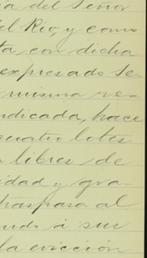 ia del Señor
del Rio, y como
ta, con dicha
expresado Se-
misma ve-
ndicada, hace
cuatro lotes
libres de
idad y gra-
traspasa al
a sus
la evicción